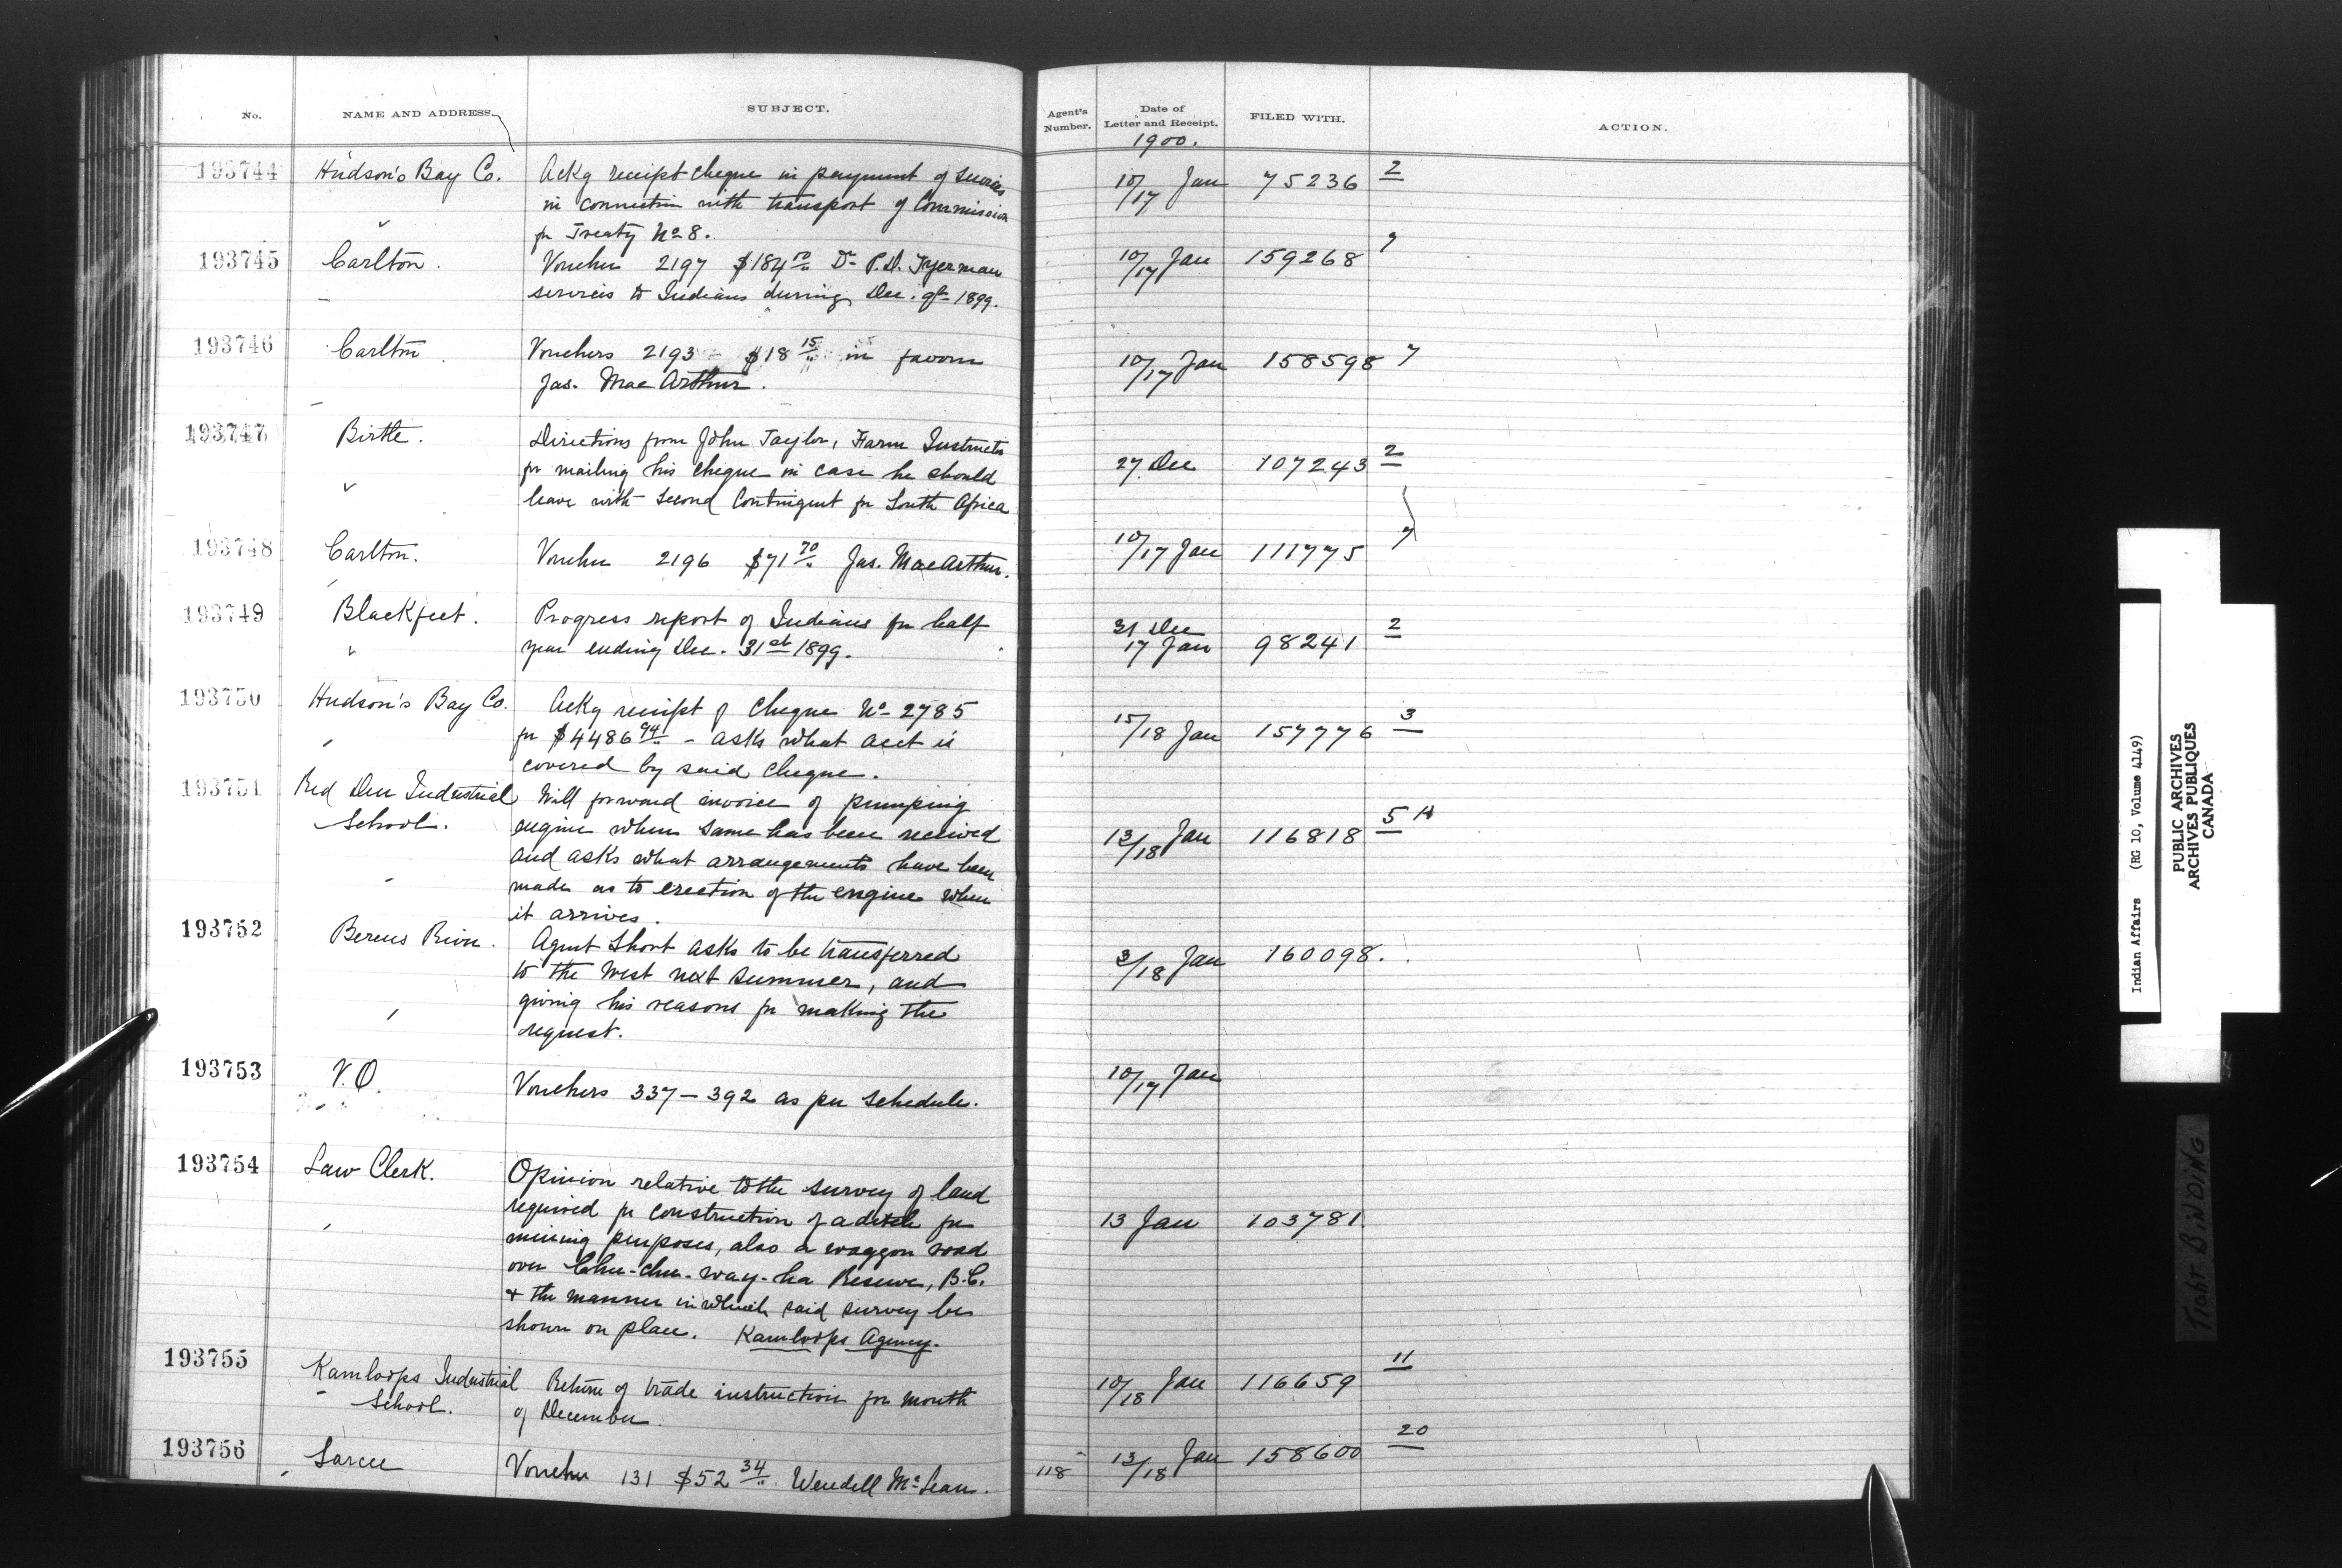 No. NAME AND ADDRESS. SUBJECT. Agent's Number. Date of Letter and Receipt. FILED WITH. ACTION.
1900.
193744 Hudson's Bay Co. Ackg receipt cheque in payment of services 10/17 Jan 75236 2
in connection with transport of Commission
for Treaty No 8.
193745 Carlton. Voucher 2197 $184 50 Dr P.D. Tyerman 10/17 Jan 159268 7
services to Indians during Dec. qr 1899.
193746 Carlton. Vouchers 2193 $18 15 in favour 10/17 Jan 158598 7
Jas. MacArthur.
193747 Birtle. Directions from John Taylor, Farm Instructor 27 Dec 107243 2
for mailing his cheque in case he should
leave with Second Contingent for South Africa
193748 Carlton. Voucher 2196 $71 70 Jas. MacArthur. 10/17 Jan 111775 7
193749 Blackfeet. Progress report of Indians for half 31 Dec
year ending Dec. 31st 1899. 17 Jan 98241 2
193750 Hudson's Bay Co. Ackg receipt of Cheque No 2785 15/18 Jan 157776 3
for $4486 94 - asks what acct is
covered by said cheque.
193751 Red Deer Industrial Will forward invoice of pumping
School. engine when same has been received 13/18 Jan 116818 5
and asks what arrangements have been
made as to erection of the engine when
it arrives.
193752 Berens River. Agent Short asks to be transferred 3/18 Jan 160098.
to the West next summer, and
giving his reasons for making the
request.
193753 V.O. Vouchers 337-392 as per schedule. 10/17 Jan
193754 Law Clerk. Opinion relative to the survey of land
required for construction of a ditch for 13 Jan 103781
mining purposes, also a waggon road
over Chu-chu-way-ha Reserve, B.C.
& the manner in which said survey be
shown on plan. Kamloops Agency.
193755 Kamloops Industrial Return of trade instruction for month 10/18 Jan 116659 11
School. of December.
193756 Sarcee Voucher 131 $52 34 Wendell McLean. 118 13/18 Jan 158600 20
Indian Affairs (RG 10, Volume 4149)
PUBLIC ARCHIVES
ARCHIVES PUBLIQUES
CANADA
TIGHT BINDING